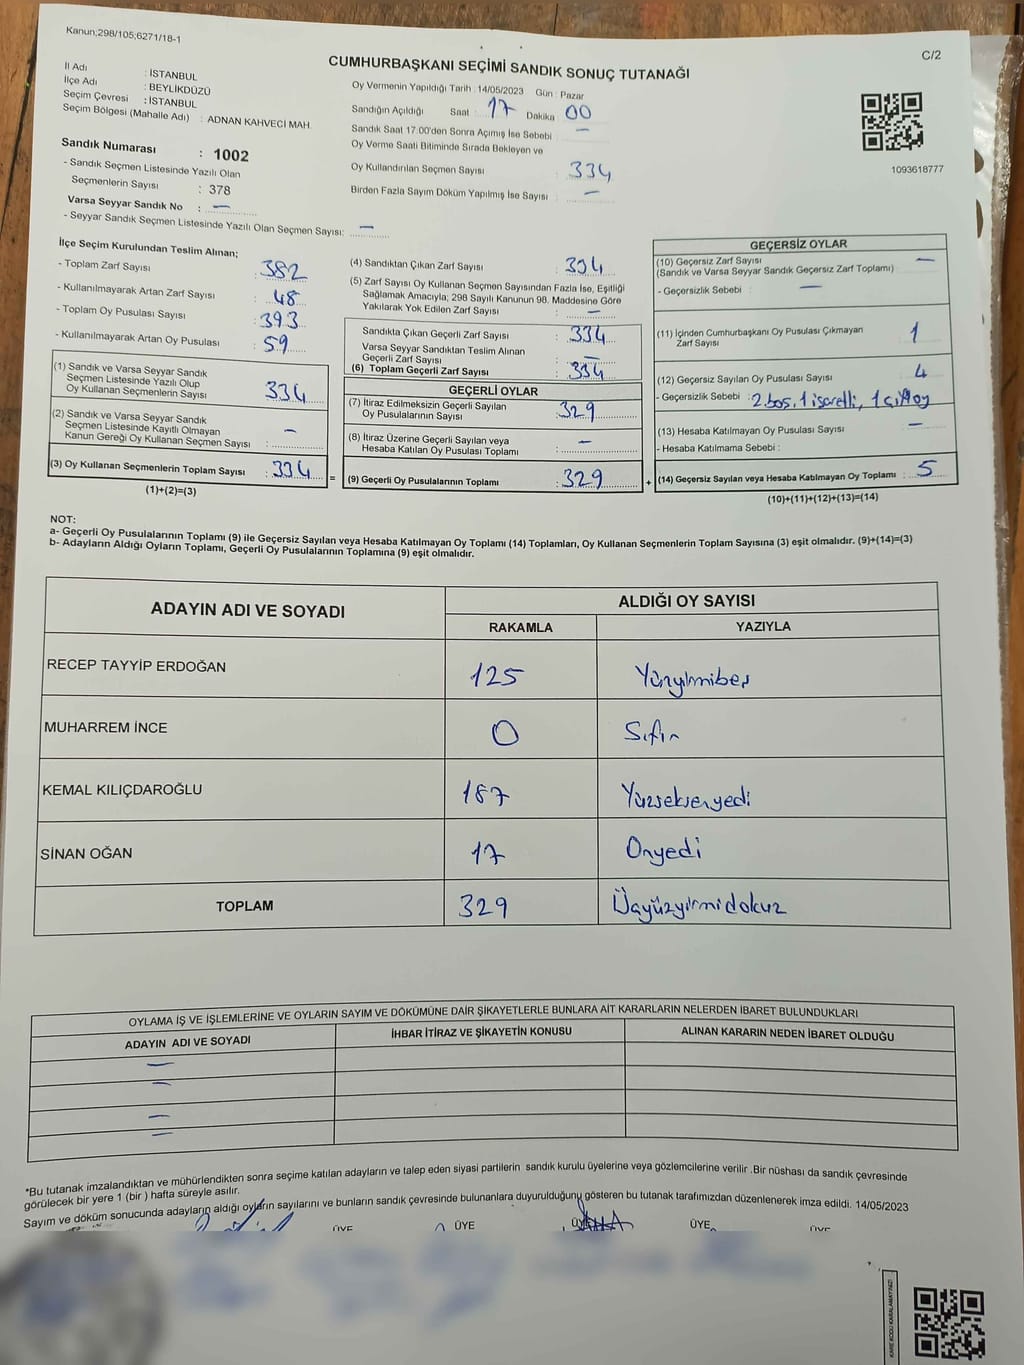 Kanun;298/105;6271/18-1
C/2
CUMHURBAŞKANI SEÇİMİ SANDIK SONUÇ TUTANAĞI
İl Adı : İSTANBUL
İlçe Adı : BEYLİKDÜZÜ
Seçim Çevresi : İSTANBUL
Seçim Bölgesi (Mahalle Adı) : ADNAN KAHVECİ MAH.
Oy Vermenin Yapıldığı Tarih : 14/05/2023 Gün : Pazar
Sandığın Açıldığı Saat : 17 Dakika 00
Sandık Saat 17:00'den Sonra Açımış İse Sebebi : —
Oy Verme Saati Bitiminde Sırada Bekleyen ve
Oy Kullandırılan Seçmen Sayısı : 334
Birden Fazla Sayım Döküm Yapılmış İse Sayısı : —
1093618777
Sandık Numarası : 1002
- Sandık Seçmen Listesinde Yazılı Olan
Seçmenlerin Sayısı : 378
Varsa Seyyar Sandık No : —
- Seyyar Sandık Seçmen Listesinde Yazılı Olan Seçmen Sayısı: —
İlçe Seçim Kurulundan Teslim Alınan;
- Toplam Zarf Sayısı : 382
- Kullanılmayarak Artan Zarf Sayısı : 48
- Toplam Oy Pusulası Sayısı : 393
- Kullanılmayarak Artan Oy Pusulası : 59
(1) Sandık ve Varsa Seyyar Sandık
Seçmen Listesinde Yazılı Olup
Oy Kullanan Seçmenlerin Sayısı : 334
(2) Sandık ve Varsa Seyyar Sandık
Seçmen Listesinde Kayıtlı Olmayan
Kanun Gereği Oy Kullanan Seçmen Sayısı : —
(3) Oy Kullanan Seçmenlerin Toplam Sayısı : 334
(1)+(2)=(3)
(4) Sandıktan Çıkan Zarf Sayısı : 334
(5) Zarf Sayısı Oy Kullanan Seçmen Sayısından Fazla İse, Eşitliği
Sağlamak Amacıyla; 298 Sayılı Kanunun 98. Maddesine Göre
Yakılarak Yok Edilen Zarf Sayısı : —
Sandıkta Çıkan Geçerli Zarf Sayısı : 334
Varsa Seyyar Sandıktan Teslim Alınan
Geçerli Zarf Sayısı : —
(6) Toplam Geçerli Zarf Sayısı : 334
GEÇERLİ OYLAR
(7) İtiraz Edilmeksizin Geçerli Sayılan
Oy Pusulalarının Sayısı : 329
(8) İtiraz Üzerine Geçerli Sayılan veya
Hesaba Katılan Oy Pusulası Toplamı : —
= (9) Geçerli Oy Pusulalarının Toplamı : 329
GEÇERSİZ OYLAR
(10) Geçersiz Zarf Sayısı : —
(Sandık ve Varsa Seyyar Sandık Geçersiz Zarf Toplamı)
- Geçersizlik Sebebi : —
(11) İçinden Cumhurbaşkanı Oy Pusulası Çıkmayan
Zarf Sayısı : 1
(12) Geçersiz Sayılan Oy Pusulası Sayısı : 4
- Geçersizlik Sebebi : 2 boş, 1 işaretli, 1 çift oy
(13) Hesaba Katılmayan Oy Pusulası Sayısı : —
- Hesaba Katılmama Sebebi :
+ (14) Geçersiz Sayılan veya Hesaba Katılmayan Oy Toplamı : 5
(10)+(11)+(12)+(13)=(14)
NOT:
a- Geçerli Oy Pusulalarının Toplamı (9) ile Geçersiz Sayılan veya Hesaba Katılmayan Oy Toplamı (14) Toplamları, Oy Kullanan Seçmenlerin Toplam Sayısına (3) eşit olmalıdır. (9)+(14)=(3)
b- Adayların Aldığı Oyların Toplamı, Geçerli Oy Pusulalarının Toplamına (9) eşit olmalıdır.
ADAYIN ADI VE SOYADI
ALDIĞI OY SAYISI
RAKAMLA YAZIYLA
RECEP TAYYİP ERDOĞAN 125 Yüzyirmibeş
MUHARREM İNCE 0 Sıfır
KEMAL KILIÇDAROĞLU 187 Yüzseksenyedi
SİNAN OĞAN 17 Onyedi
TOPLAM 329 Üçyüzyirmidokuz
OYLAMA İŞ VE İŞLEMLERİNE VE OYLARIN SAYIM VE DÖKÜMÜNE DAİR ŞİKAYETLERLE BUNLARA AİT KARARLARIN NELERDEN İBARET BULUNDUKLARI
ADAYIN ADI VE SOYADI İHBAR İTİRAZ VE ŞİKAYETİN KONUSU ALINAN KARARIN NEDEN İBARET OLDUĞU
—
—
—
—
*Bu tutanak imzalandıktan ve mühürlendikten sonra seçime katılan adayların ve talep eden siyasi partilerin sandık kurulu üyelerine veya gözlemcilerine verilir .Bir nüshası da sandık çevresinde
görülecek bir yere 1 (bir ) hafta süreyle asılır.
Sayım ve döküm sonucunda adayların aldığı oyların sayılarını ve bunların sandık çevresinde bulunanlara duyurulduğunu gösteren bu tutanak tarafımızdan düzenlenerek imza edildi. 14/05/2023
ÜYE ÜYE ÜYE ÜYE ÜYE